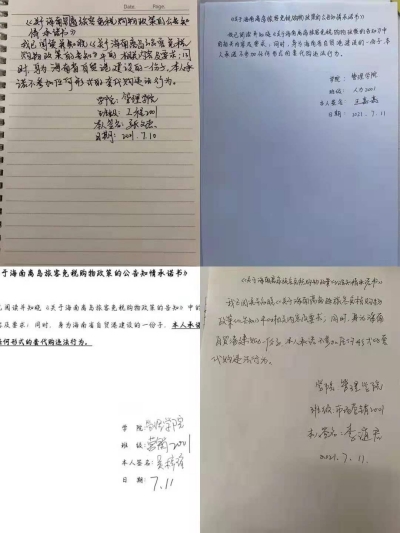 Date. Page.
《关于海南离岛旅客免税购物政策的公告知
情承诺书》
我已阅读并知晓《关于海南离岛旅客免税
购物政策的公告》中的相关内容及要求；同
时，身为海南省自贸港建设的一份子，本人承
诺不参加任何形式的套代购违法行为。
学院：管理学院
班级：人力2001
本人签名：
日期：2021.7.10
《关于海南离岛旅客免税购物政策的公告知情承诺书》
我已阅读并知晓《关于海南离岛旅客免税购物政策的公告》中
的相关内容及要求；同时，身为海南省自贸港建设的一份子，本
人承诺不参加任何形式的套代购违法行为。
学院：管理学院
班级：人力2001
本人签名：王嘉嘉
日期：2021.7.11
于海南离岛旅客免税购物政策的公告知情承诺书》
已阅读并知晓《关于海南离岛旅客免税购物政策的公告》中的
容及要求；同时，身为海南省自贸港建设的一份子，本人承诺
任何形式的套代购违法行为。
学 院：管理学院
班 级：营销2001
本人签名：
日 期：7.11
《关于海南离岛旅客免税购物政策的公告知情承诺书》
我已阅读并知晓《关于海南离岛旅客免税购物
政策的公告》中的相关内容及要求；同时，身为海南省
自贸港建设的一份子，本人承诺不参加任何形式的套
代购违法行为。
学院：管理学院
班级：市场营销2001
本人签名：李
2021.7.11